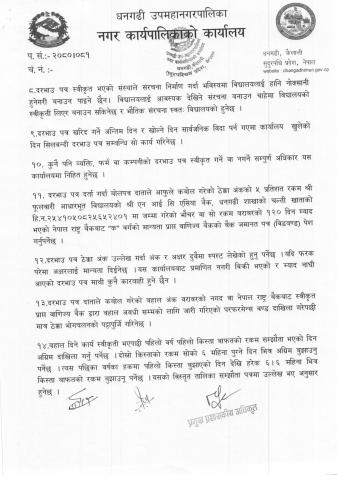 धनगढी उपमहानगरपालिका
नगर कार्यपालिकाको कार्यालय
प. सं.:-२०८०।०८१
च. नं. :-
धनगढी, कैलाली
सुदूरपश्चिम प्रदेश, नेपाल
८.दरभाउ पत्र स्वीकृत भएको संस्थाले संरचना निर्माण गर्दा भविष्यमा विद्यालयलाई हानि नोक्सानी
हुनेगरी बनाउन पाइने छैन। विद्यालयलाई आवश्यक देखिने संरचना बनाउन चाहेमा विद्यालयको
स्वीकृती लिएर बनाउन सकिनेछ र भौतिक संरचना स्वतः विद्यालयको हुनेछ ।
९.दरभाउ पत्र खरिद गर्ने अन्तिम दिन र खोल्ने दिन सार्वजनिक विदा पर्न गएमा कार्यालय खुलेको
दिन सिलबन्दी दरभाउ पत्र सम्बन्धि सो कार्य गरिनेछ ।
१०. कुनै पनि व्यक्ति, फर्म वा कम्पनीको दरभाउ पत्र स्वीकृत गर्ने वा नगर्ने सम्पूर्ण अधिकार यस
कार्यालयमा निहित हुनेछ ।
११. दरभाउ पत्र दर्ता गर्दा बोलपत्र दाताले आफुले कबोल गरेको ठेक्का अंकको ५ प्रतिशत रकम श्री
फूलबारी आधारभूत विद्यालयको श्री एन आई सि एसिया बैंक, धनगढी शाखाको चल्ती खाताको
मा जम्मा गरेको भौचर वा सो रकम बरावरको १२० दिन म्याद
भएको नेपाल राष्ट्र बैंकबाट "क" वर्गको मान्यता प्राप्त वाणिज्य बैंकको बैंक जमानत पत्र (बिडवण्ड) पेश
गर्नुपर्नेछ ।
१२.दरभाउ पत्र ठेक्का अंक उल्लेख गर्दा अंक र अक्षर दुवैमा स्पस्ट लेखेको हुनु पर्नेछ । यदि फरक
परेमा अक्षरलाई मान्यता दिईनेछ । यस कार्यालयबाट प्रमाणित नगरी बिक्री भएको र म्याद नाघी
आएको दरभाउ पत्र माथी कुनै कारवाही हुने छैन ।
१३.दरभाउ पत्र दाताले कबोल गरेको बहाल अंक बरावरको नगद वा नेपाल राष्ट्र बैंकबाट स्वीकृत
प्राप्त वाणिज्य बैंक द्वारा बहाल अवधी सम्मको लागि जारी गरिएको परफरमेन्स बण्ड दाखिला गरेपछी
मात्र ठेक्का भोगचलनको पट्टापूर्जि गरिनेछ ।
१४.बहाल दिने कार्य स्वीकृती भएपछी पहिलो वर्ष पहिलो किस्ता वाफतको रकम सम्झौता भएको दिन
अग्रिम दाखिला गर्नु पर्नेछ । दोस्रो किस्ताको रकम सोको ६ महिना पुग्ने दिन भित्र अग्रिम बुझाउनु
पर्नेछ । त्यस पछिका वर्षका हकमा पहिलो किस्ता बुझाएको दिन देखि हरेक ६।६ महिना भित्र
किस्ता वाफतको रकम बुझाउनु पर्नेछ । यसको विस्तृत तालिका सम्झौता पत्रमा उल्लेख भए अनुसार
हुनेछ ।
प्रमुख प्रशासकीय अधिकृत